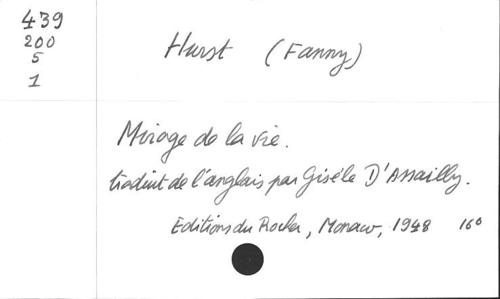 439
200
5
1
Hurst (Fanny)
Mirage de la vie.
traduit de l'anglais par Gisèle D'Assailly.
Editions du Rocher, Monaco, 1948 16°